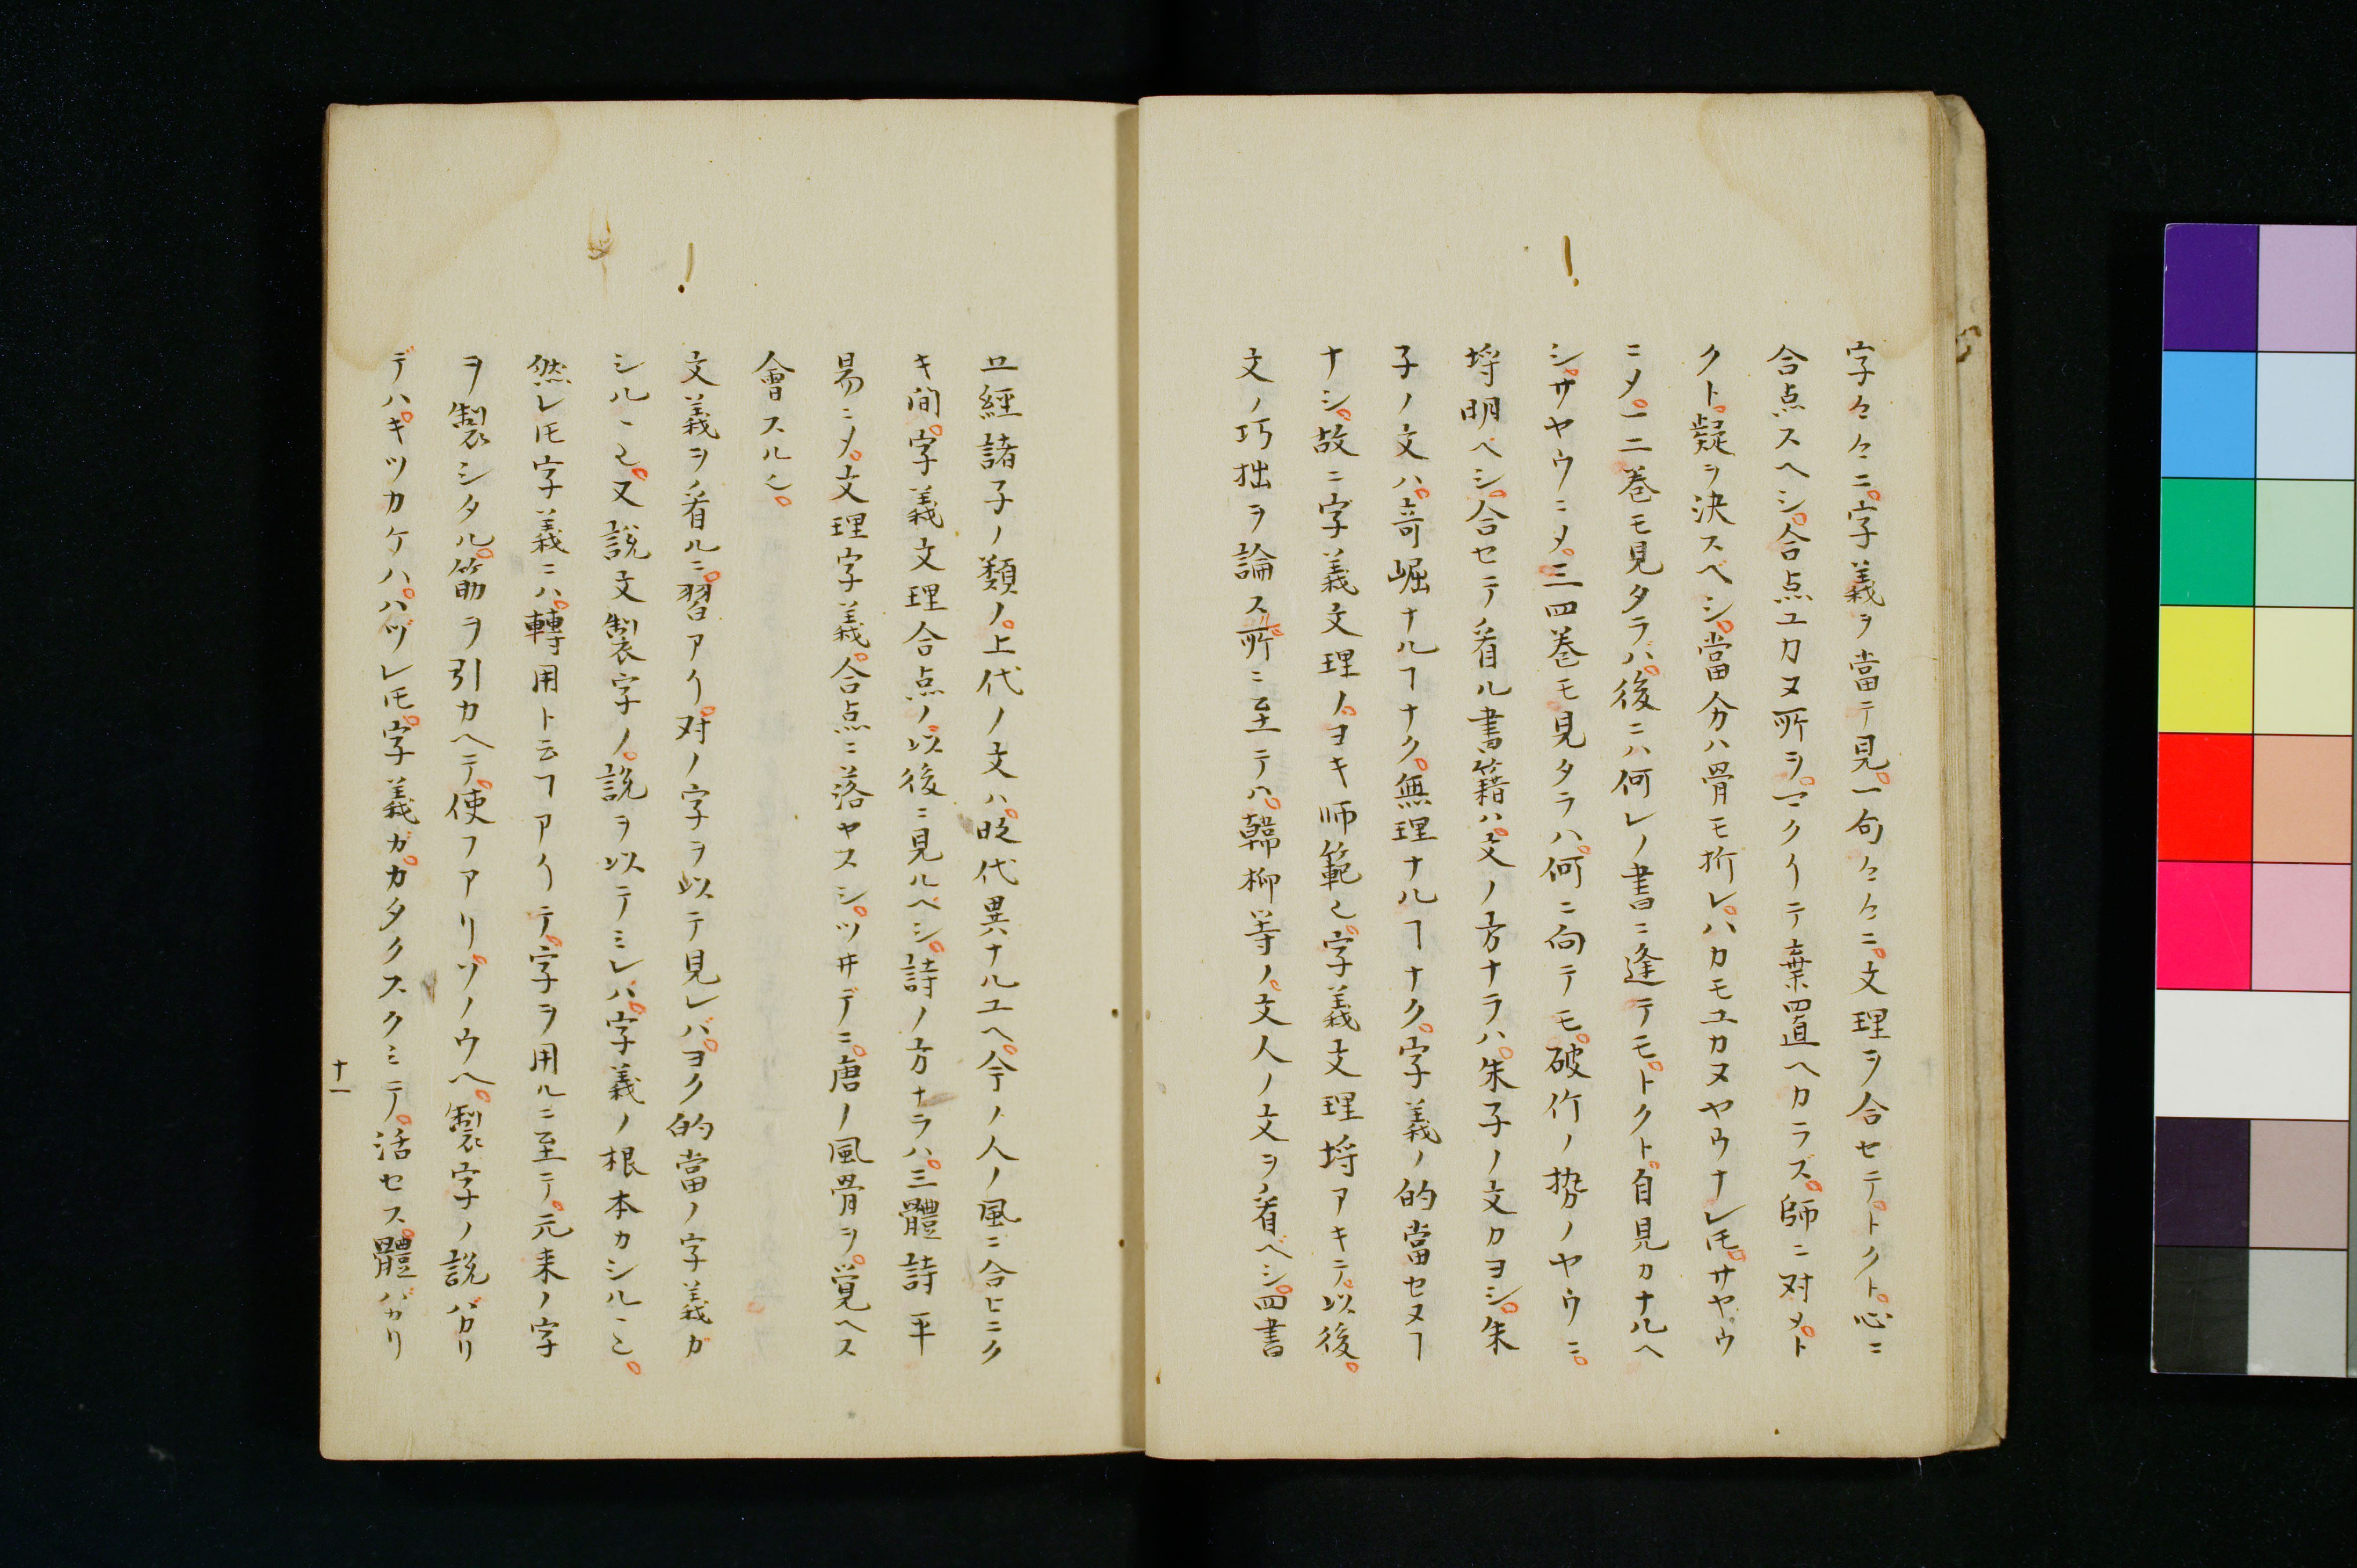 字々々ニ。字義ヲ當テ見。一句々々ニ。文理ヲ合セテ。トクト。心ニ
合点スヘシ。合点ユカヌ所ヲ。マクリテ棄置ヘカラズ。師ニ対〆。ト
クト。疑ヲ決スベシ。當分ハ骨モ折レ。ハカモユカヌヤウナレ𪜈。サヤウ
ニ〆。一二巻モ見タラハ。後ニハ何レノ書ニ逢テモ。トクト。自見カナルヘ
シ。サヤウニ〆。三四巻モ見タラハ。何ニ向テモ。破竹ノ勢ノヤウニ。
埒明ベシ。合セテ看ル書籍ハ。文ノ方ナラハ。朱子ノ文カヨシ。朱
子ノ文ハ。奇崛ナルヿナク。無理ナルヿナク。字義ノ的當セヌヿ
ナシ。故ニ字義文理ノ。ヨキ師範也。字義文理埒アキテ。以後。
文ノ巧拙ヲ論ス。所ニ至テハ。韓柳等ノ。文人ノ文ヲ看ベシ。四書
五經諸子ノ類ノ。上代ノ文ハ。時代異ナルユヘ。今ノ人ノ風ニ合ヒニク
キ間。字義文理合点ノ。以後ニ見ルベシ。詩ノ方ナラハ。三體詩平
易ニ〆。文理字義。合点ニ落ヤスシ。ツ井デニ。唐ノ風骨ヲ。覚ヘス
會スル也。
文義ヲ看ルニ。習アリ。対ノ字ヲ以テ見レバ。ヨク的當ノ字義ガ
シルヽ也。又說文製字ノ。說ヲ以テミレハ。字義ノ根本カシルヽ也。
然レ𪜈字義ニハ。轉用ト云ヿアリテ。字ヲ用ルニ至テ。元来ノ字
ヲ製シタル。筋ヲ引カヘテ。使フアリ。ソノウヘ。製字ノ說バカリ
デハ。キツカケハ。ハヅレ𪜈。字義ガ。カタクスクミテ。活セス。體バカリ
十一